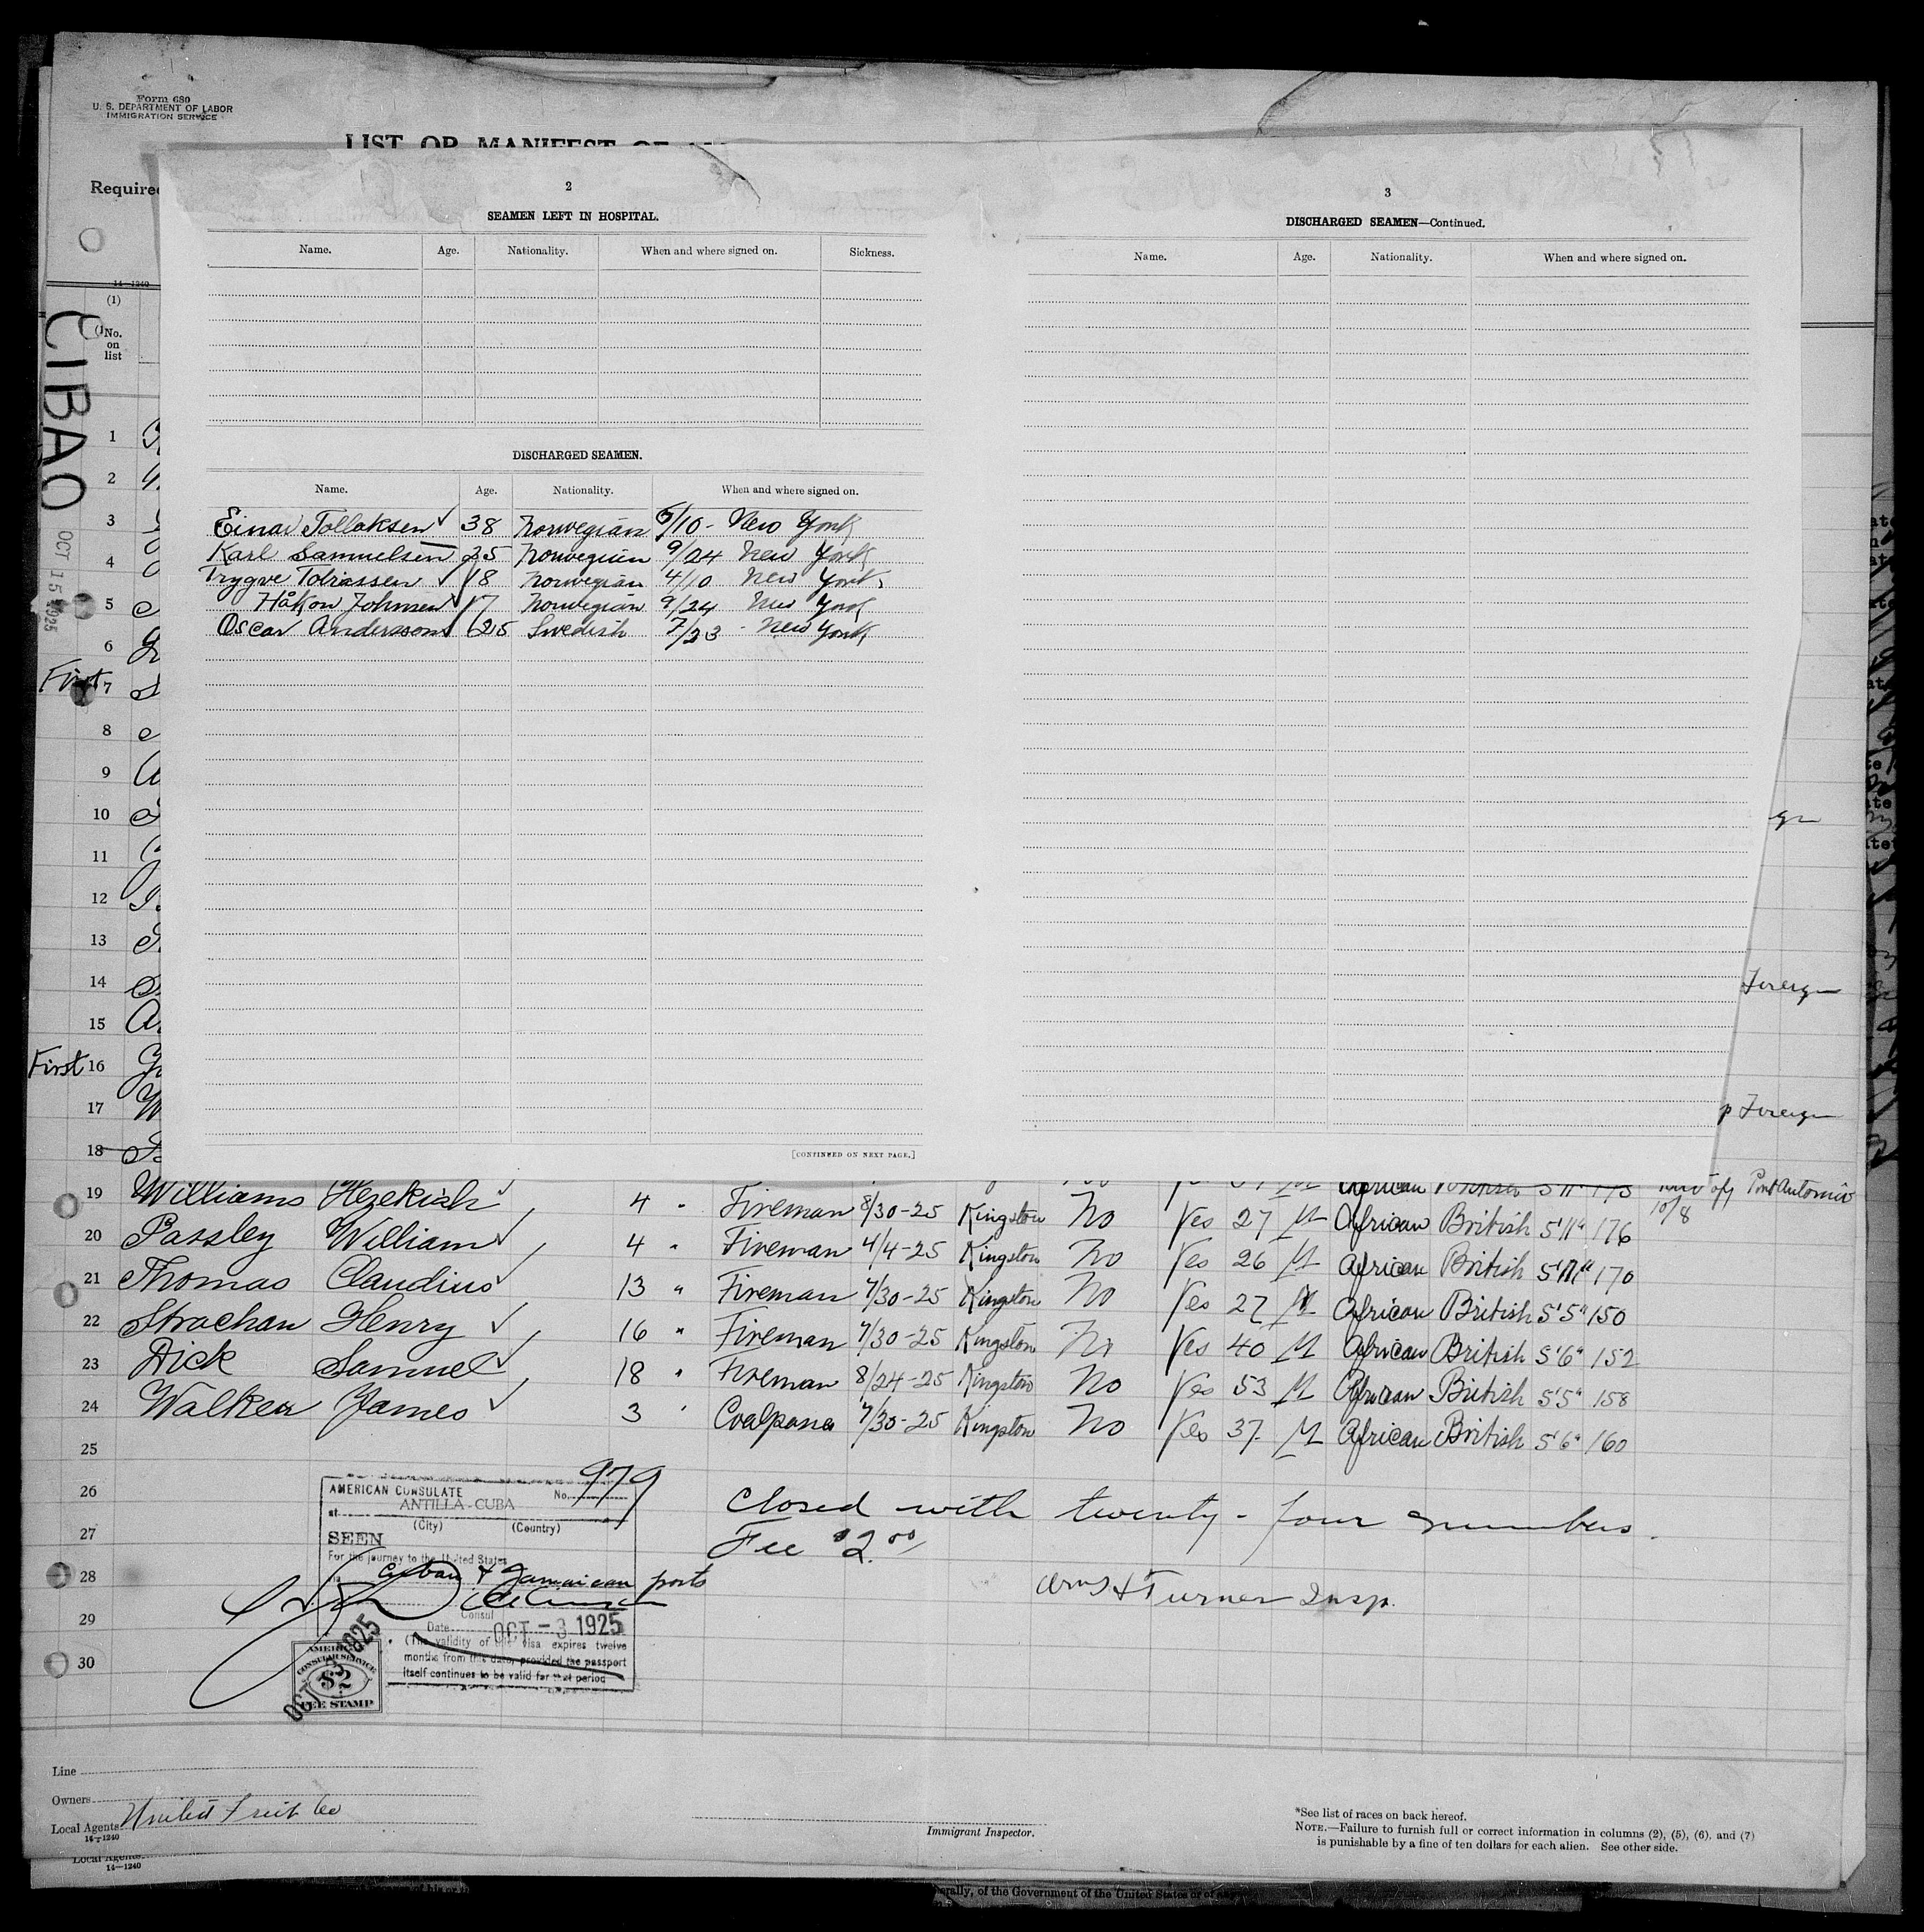 Form 680
U. S. DEPARTMENT OF LABOR
IMMIGRATION SERVICE
LIST OR MANIFEST OF
Required
14—1240
(1)
No.
on
list
CIBAO
OCT 15 1925
2
SEAMEN LEFT IN HOSPITAL.
Name. Age. Nationality. When and where signed on. Sickness.
DISCHARGED SEAMEN.
Name. Age. Nationality. When and where signed on.
Einar Tollaksen 38 Norwegian 5/10 - New York
Karl Samuelsen 25 Norwegian 9/24 New York
Trygve Tobiassen 18 Norwegian 4/10 New York
Håkon Johnsen 17 Norwegian 9/24 New York
Oscar Andersson 25 Swedish 7/23 - New York
[CONTINUED ON NEXT PAGE.]
3
DISCHARGED SEAMEN—Continued.
Name. Age. Nationality. When and where signed on.
1
2
3
4
5
6
First 7
8
9
10
11
12
13
14 Foreign
15
First 16
17 p Foreign
18
African 5'11" 175 off Port Antonio
10/8
19 Williams Hezekiah 4 " Fireman 8/30-25 Kingston No Yes 27 M African British 5'11" 176
20 Passley William 4 " Fireman 4/4-25 Kingston No Yes 26 M African British 170
21 Thomas Claudius 13 " Fireman 7/30-25 Kingston No Yes 27 M African British 5'5" 150
22 Strachan Henry 16 " Fireman 7/30-25 Kingston No Yes 40 M African British 5'6" 152
23 Dick Samuel 18 " Fireman 8/24-25 Kingston No Yes 53 M African British 5'5" 158
24 Walker James 3 " Coalpasser 7/30-25 Kingston No Yes 37 M African British 5'6" 160
25
26
27
28
29
30
AMERICAN CONSULATE No. 979
at ANTILLA-CUBA
(City) (Country)
SEEN
For the journey to the United States
Cuban & Jamaican ports
Consul
Date OCT -3 1925
(The validity of this visa expires twelve
months from this date, provided the passport
itself continues to be valid for that period
AMERICAN
CONSULAR SERVICE
$2
FEE STAMP
OCT 1925
Closed with twenty-four numbers.
Fee $2.00
Turner Insp.
Line
Owners
Local Agents United Fruit Co
14—1240
Immigrant Inspector.
*See list of races on back hereof.
NOTE.—Failure to furnish full or correct information in columns (2), (5), (6), and (7)
is punishable by a fine of ten dollars for each alien. See other side.
Local Agents
14—1240
erally, of the Government of the United States or of